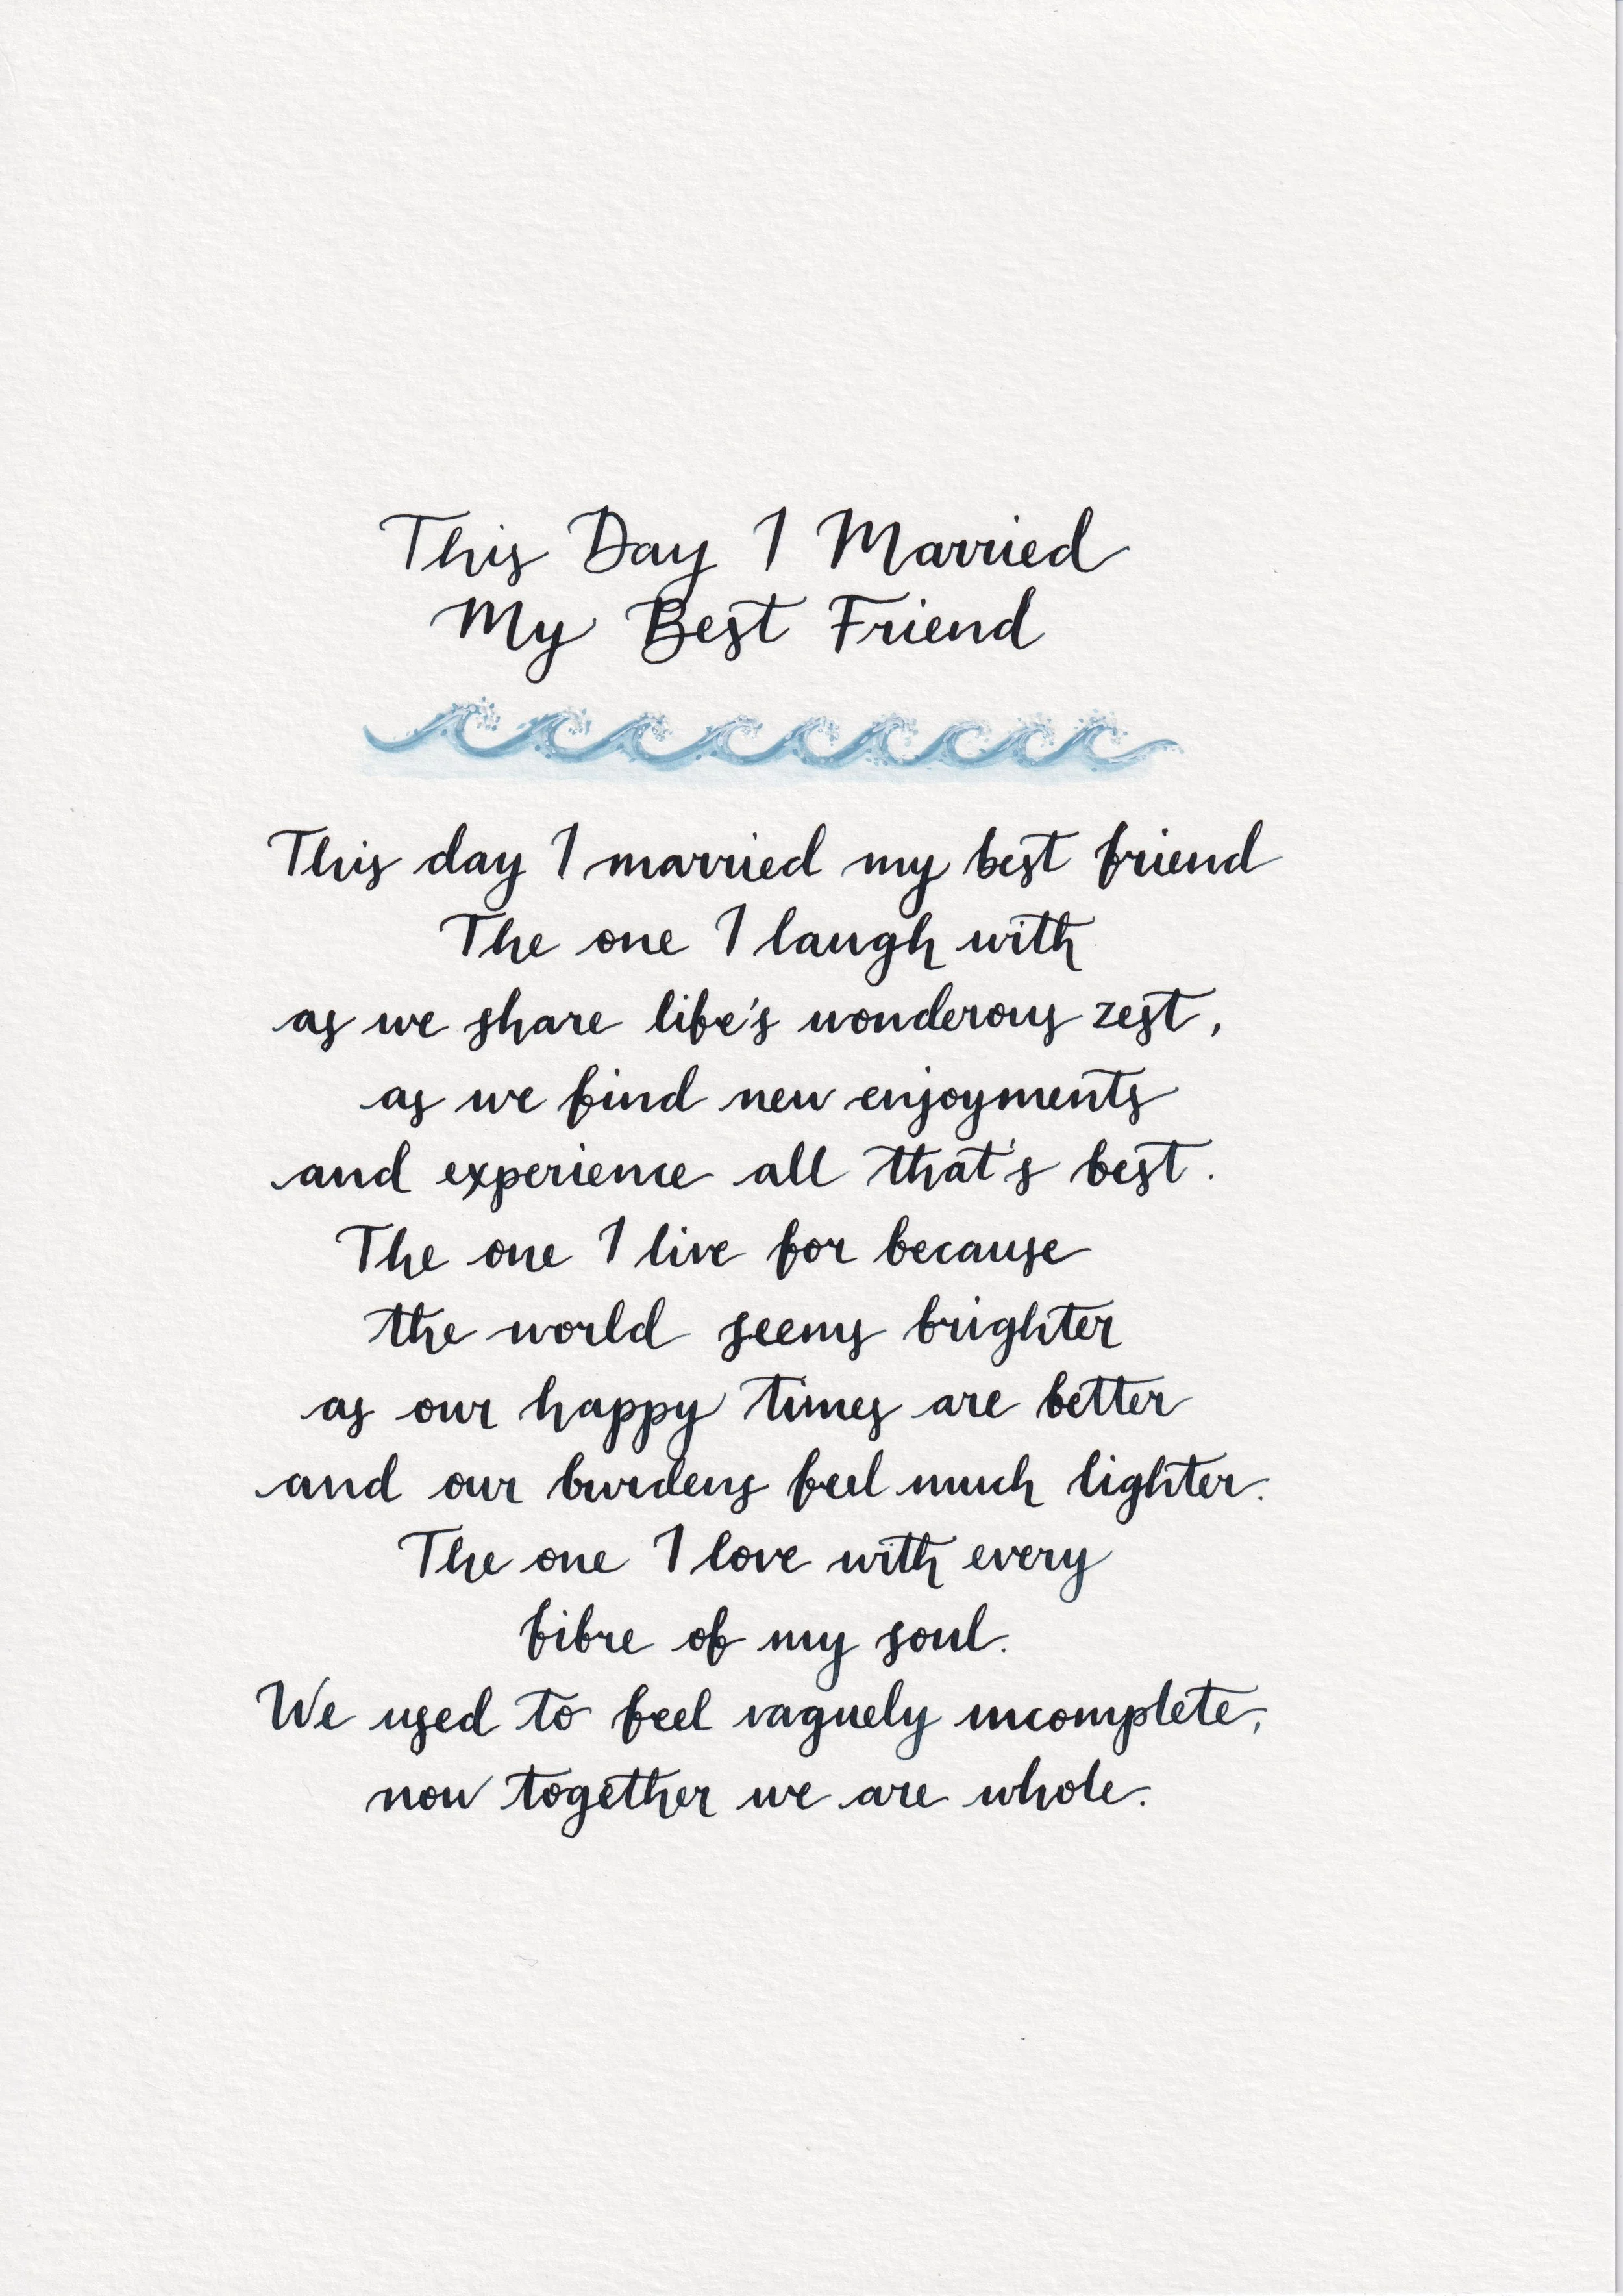 This Day I Married
My Best Friend
This day I married my best friend
The one I laugh with
as we share life's wonderous zest,
as we find new enjoyments
and experience all that's best.
The one I live for because
the world seems brighter
as our happy times are better
and our burdens feel much lighter.
The one I love with every
fibre of my soul.
We used to feel vaguely incomplete,
now together we are whole.